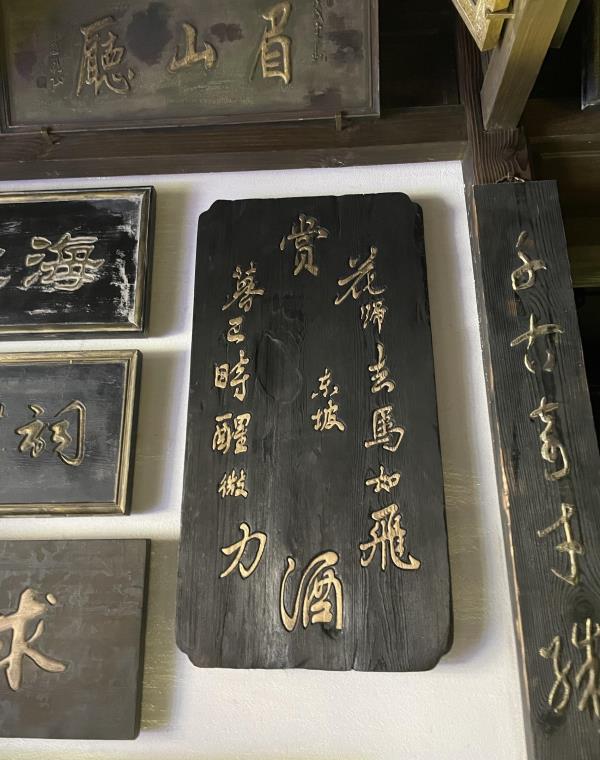 眉山廳
海
祠
求
赏
花歸去馬如飛
酒
力微醒時已暮
东坡
千古奇才殊